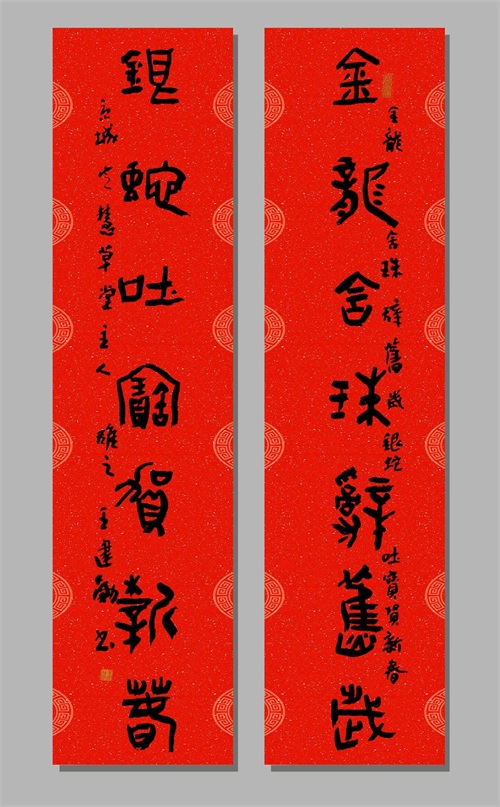 金龍含珠辭舊歲
金龍含珠辭舊歲銀蛇吐寶賀新春
銀蛇吐寶賀新春
京城慧草堂主人雄之王建勋书